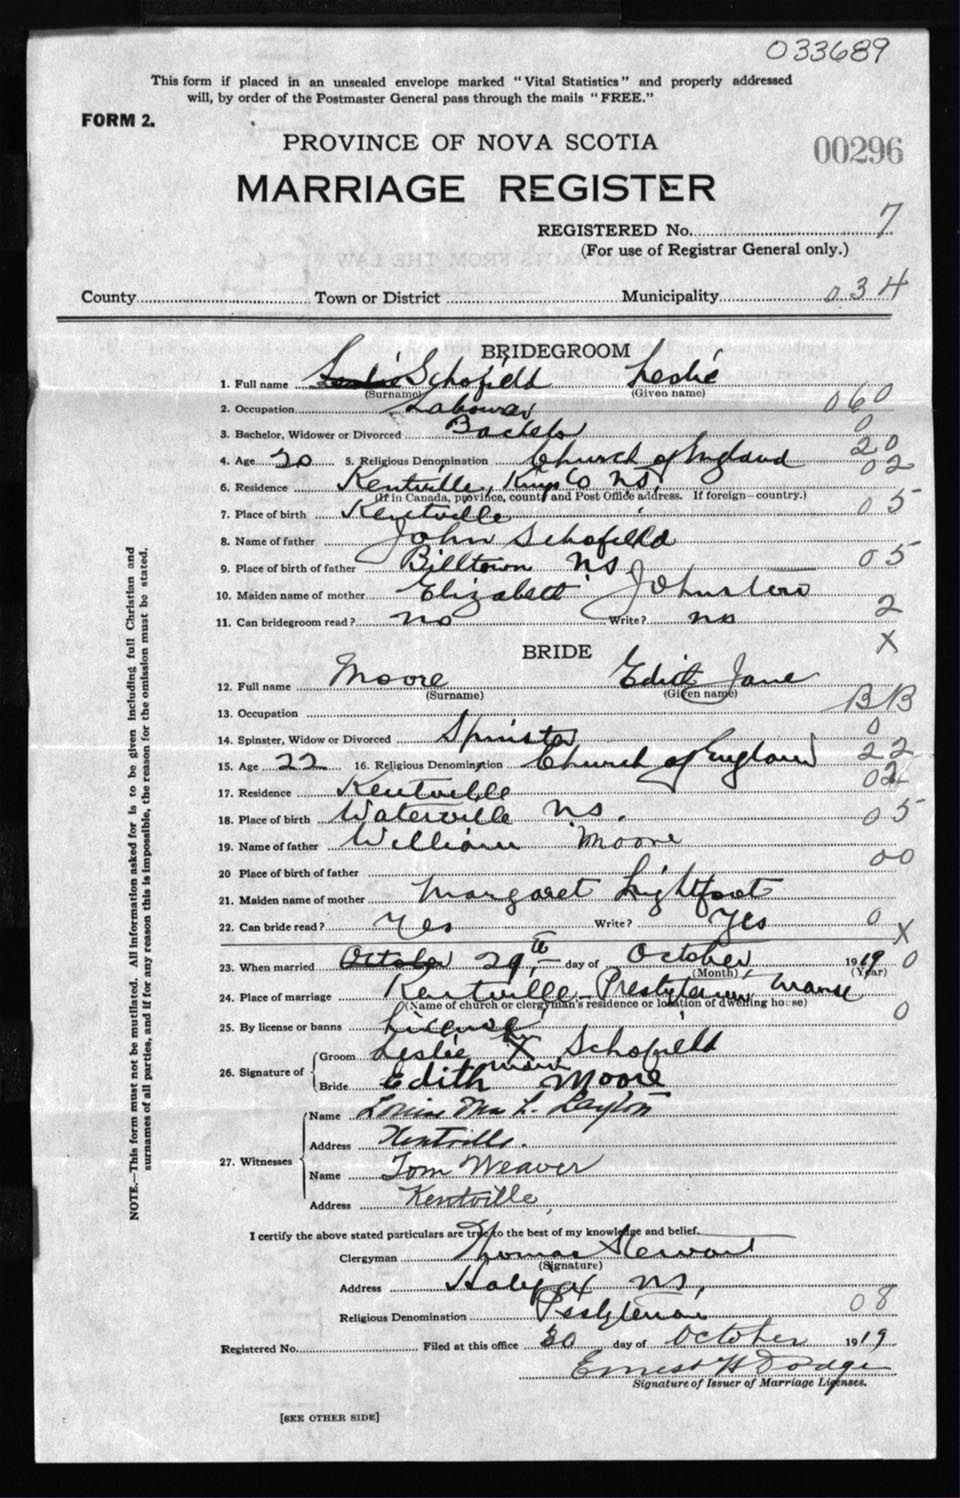 033689
This form if placed in an unsealed envelope marked "Vital Statistics" and properly addressed
will, by order of the Postmaster General pass through the mails "FREE."
FORM 2.
PROVINCE OF NOVA SCOTIA
00296
MARRIAGE REGISTER
REGISTERED No. 7
(For use of Registrar General only.)
County Town or District Municipality 034
BRIDEGROOM
1. Full name Schofield Leslie
(Surname) (Given name)
2. Occupation Labourer 060
3. Bachelor, Widower or Divorced Bachelor 0
4. Age 20 5. Religious Denomination Church of England 20
6. Residence Kentville, Kings Co NS. 02
(If in Canada, province, county and Post Office address. If foreign—country.)
7. Place of birth Kentville 05
8. Name of father John Schofield
9. Place of birth of father Billtown NS 05
10. Maiden name of mother Elizabeth Johnston
11. Can bridegroom read? no Write? no 2
X
BRIDE
12. Full name Moore Edith Jane
(Surname) (Given name)
13. Occupation BB
14. Spinster, Widow or Divorced Spinster 0
15. Age 22 16. Religious Denomination Church of England 22
17. Residence Kentville 02
18. Place of birth Waterville NS. 05
19. Name of father William Moore
20 Place of birth of father 00
21. Maiden name of mother Margaret Lightfoot
22. Can bride read? Yes Write? Yes 0
X
23. When married October 29th day of October 1919 0
(Month) (Year)
24. Place of marriage Kentville Presbyterian Manse
(Name of church or clergyman's residence or location of dwelling house)
25. By license or banns License 0
26. Signature of
Groom Leslie his X Schofield
mark
Bride Edith Moore
27. Witnesses
Name L. Layton
Address Kentville.
Name Tom Weaver
Address Kentville,
I certify the above stated particulars are true to the best of my knowledge and belief.
Clergyman Thomas Stewart
(Signature)
Address Halifax NS,
Religious Denomination Presbyterian 08
Registered No. Filed at this office 30 day of October 1919
Ernest H Dodge
Signature of Issuer of Marriage Licenses.
[SEE OTHER SIDE]
NOTE.—This form must not be mutilated. All information asked for is to be given including full Christian and
surnames of all parties, and if for any reason this is impossible, the reason for the omission must be stated.